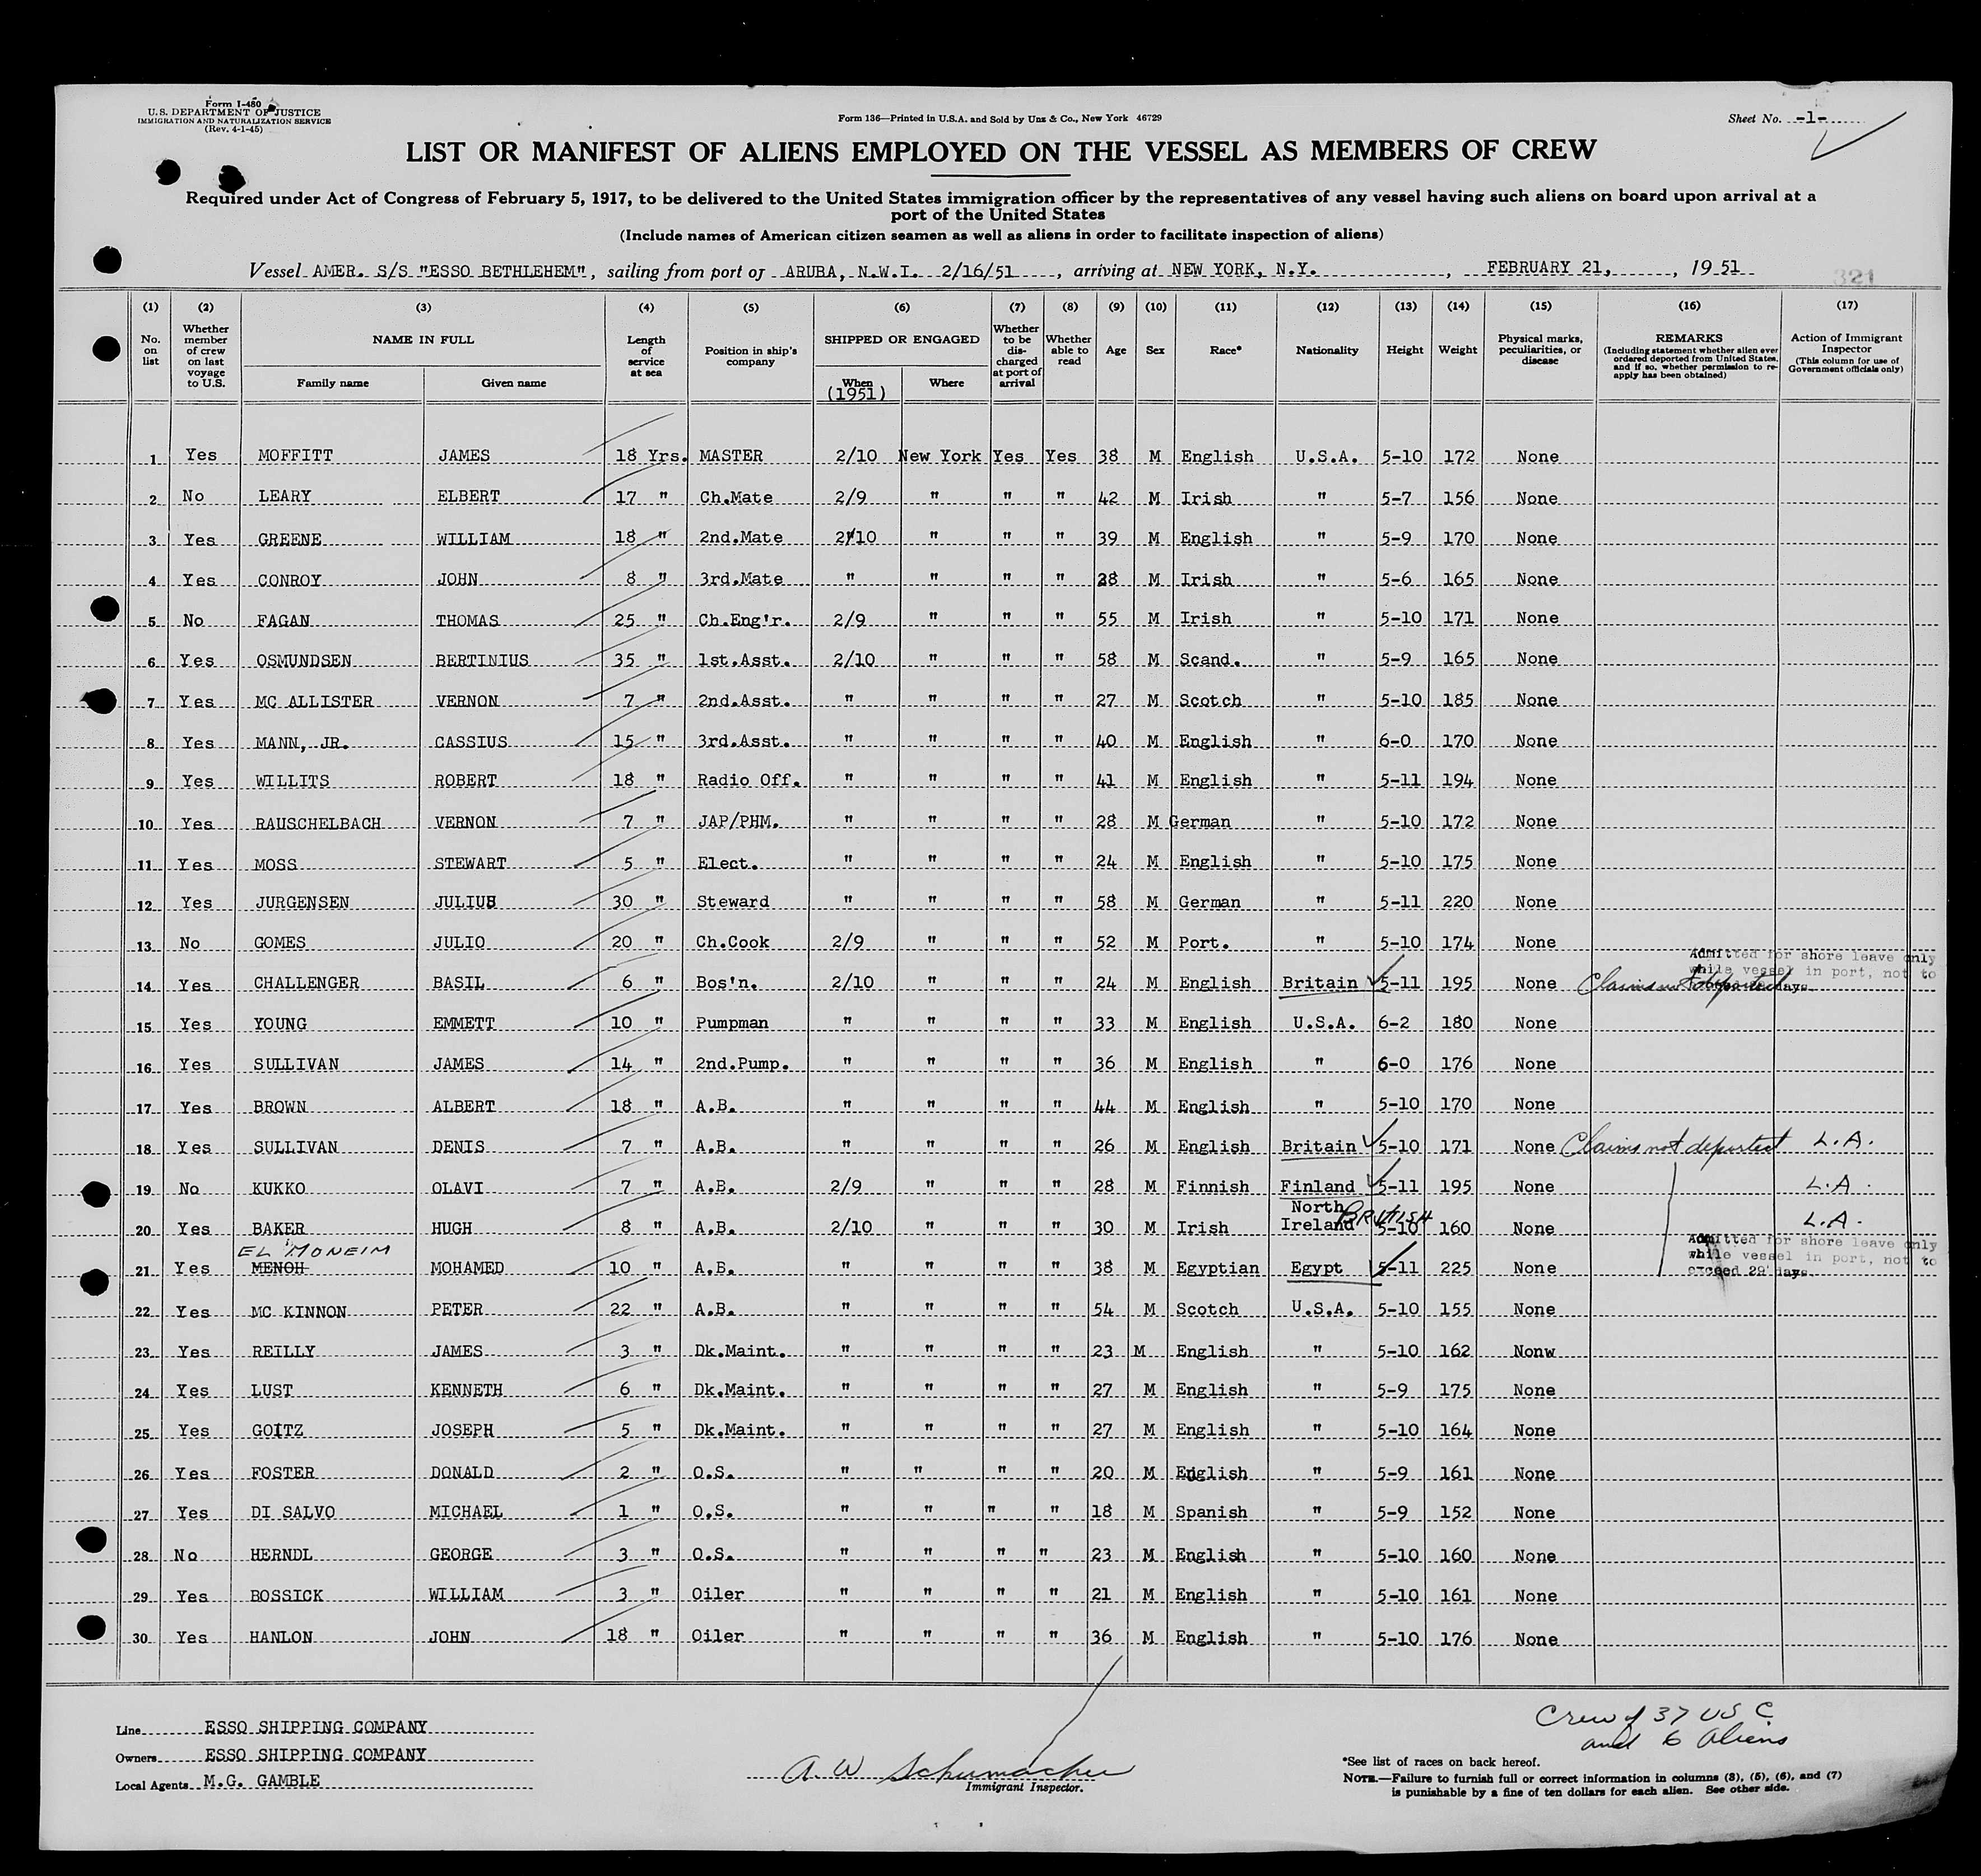 Form I-480
U.S. DEPARTMENT OF JUSTICE
IMMIGRATION AND NATURALIZATION SERVICE
(Rev. 4-1-45)
Form 136—Printed in U.S.A. and Sold by Unz & Co., New York 46729
Sheet No. -1-
LIST OR MANIFEST OF ALIENS EMPLOYED ON THE VESSEL AS MEMBERS OF CREW
Required under Act of Congress of February 5, 1917, to be delivered to the United States immigration officer by the representatives of any vessel having such aliens on board upon arrival at a
port of the United States
(Include names of American citizen seamen as well as aliens in order to facilitate inspection of aliens)
Vessel AMER. S/S "ESSO BETHLEHEM", sailing from port of ARUBA, N.W.I. 2/16/51, arriving at NEW YORK, N.Y., FEBRUARY 21, 1951
321
(1) No. on list
(2) Whether member of crew on last voyage to U.S.
(3) NAME IN FULL Family name Given name
(4) Length of service at sea
(5) Position in ship's company
(6) SHIPPED OR ENGAGED When (1951) Where
(7) Whether to be discharged at port of arrival
(8) Whether able to read
(9) Age
(10) Sex
(11) Race*
(12) Nationality
(13) Height
(14) Weight
(15) Physical marks, peculiarities, or disease
(16) REMARKS (Including statement whether alien ever ordered deported from United States, and if so, whether permission to re-apply has been obtained)
(17) Action of Immigrant Inspector (This column for use of Government officials only)
1 Yes MOFFITT JAMES 18 Yrs. MASTER 2/10 New York Yes Yes 38 M English U.S.A. 5-10 172 None
2 No LEARY ELBERT 17 " Ch.Mate 2/9 " " " 42 M Irish " 5-7 156 None
3 Yes GREENE WILLIAM 18 " 2nd.Mate 2/10 " " " 39 M English " 5-9 170 None
4 Yes CONROY JOHN 8 " 3rd.Mate " " " " 28 M Irish " 5-6 165 None
5 No FAGAN THOMAS 25 " Ch.Eng'r. 2/9 " " " 55 M Irish " 5-10 171 None
6 Yes OSMUNDSEN BERTINIUS 35 " 1st.Asst. 2/10 " " " 58 M Scand. " 5-9 165 None
7 Yes MC ALLISTER VERNON 7 " 2nd.Asst. " " " " 27 M Scotch " 5-10 185 None
8 Yes MANN, JR. CASSIUS 15 " 3rd.Asst. " " " " 40 M English " 6-0 170 None
9 Yes WILLITS ROBERT 18 " Radio Off. " " " " 41 M English " 5-11 194 None
10 Yes RAUSCHELBACH VERNON 7 " JAP/PHM. " " " " 28 M German " 5-10 172 None
11 Yes MOSS STEWART 5 " Elect. " " " " 24 M English " 5-10 175 None
12 Yes JURGENSEN JULIUS 30 " Steward " " " " 58 M German " 5-11 220 None
13 No GOMES JULIO 20 " Ch.Cook 2/9 " " " 52 M Port. " 5-10 174 None
Admitted for shore leave only
while vessel in port, not to
14 Yes CHALLENGER BASIL 6 " Bos'n. 2/10 " " " 24 M English Britain 5-11 195 None Claims not deported days
15 Yes YOUNG EMMETT 10 " Pumpman " " " " 33 M English U.S.A. 6-2 180 None
16 Yes SULLIVAN JAMES 14 " 2nd.Pump. " " " " 36 M English " 6-0 176 None
17 Yes BROWN ALBERT 18 " A.B. " " " " 44 M English " 5-10 170 None
18 Yes SULLIVAN DENIS 7 " A.B. " " " " 26 M English Britain 5-10 171 None Claims not deported L.A.
19 No KUKKO OLAVI 7 " A.B. 2/9 " " " 28 M Finnish Finland 5-11 195 None L.A.
20 Yes BAKER HUGH 8 " A.B. 2/10 " " " 30 M Irish North Ireland BRITISH 5-10 160 None L.A.
EL MONEIM
Admitted for shore leave only
while vessel in port, not to
exceed 29 days
21 Yes MENOH MOHAMED 10 " A.B. " " " " 38 M Egyptian Egypt 5-11 225 None
22 Yes MC KINNON PETER 22 " A.B. " " " " 54 M Scotch U.S.A. 5-10 155 None
23 Yes REILLY JAMES 3 " Dk.Maint. " " " " 23 M English " 5-10 162 Nonw
24 Yes LUST KENNETH 6 " Dk.Maint. " " " " 27 M English " 5-9 175 None
25 Yes GOITZ JOSEPH 5 " Dk.Maint. " " " " 27 M English " 5-10 164 None
26 Yes FOSTER DONALD 2 " O.S. " " " " 20 M English " 5-9 161 None
27 Yes DI SALVO MICHAEL 1 " O.S. " " " " 18 M Spanish " 5-9 152 None
28 No HERNDL GEORGE 3 " O.S. " " " " 23 M English " 5-10 160 None
29 Yes BOSSICK WILLIAM 3 " Oiler " " " " 21 M English " 5-10 161 None
30 Yes HANLON JOHN 18 " Oiler " " " " 36 M English " 5-10 176 None
Line ESSO SHIPPING COMPANY
Owners ESSO SHIPPING COMPANY
Local Agents M.G. GAMBLE
A. W Schumacher
Immigrant Inspector.
Crew of 37 US C
and 6 aliens
*See list of races on back hereof.
NOTE.—Failure to furnish full or correct information in columns (3), (5), (6), and (7)
is punishable by a fine of ten dollars for each alien. See other side.